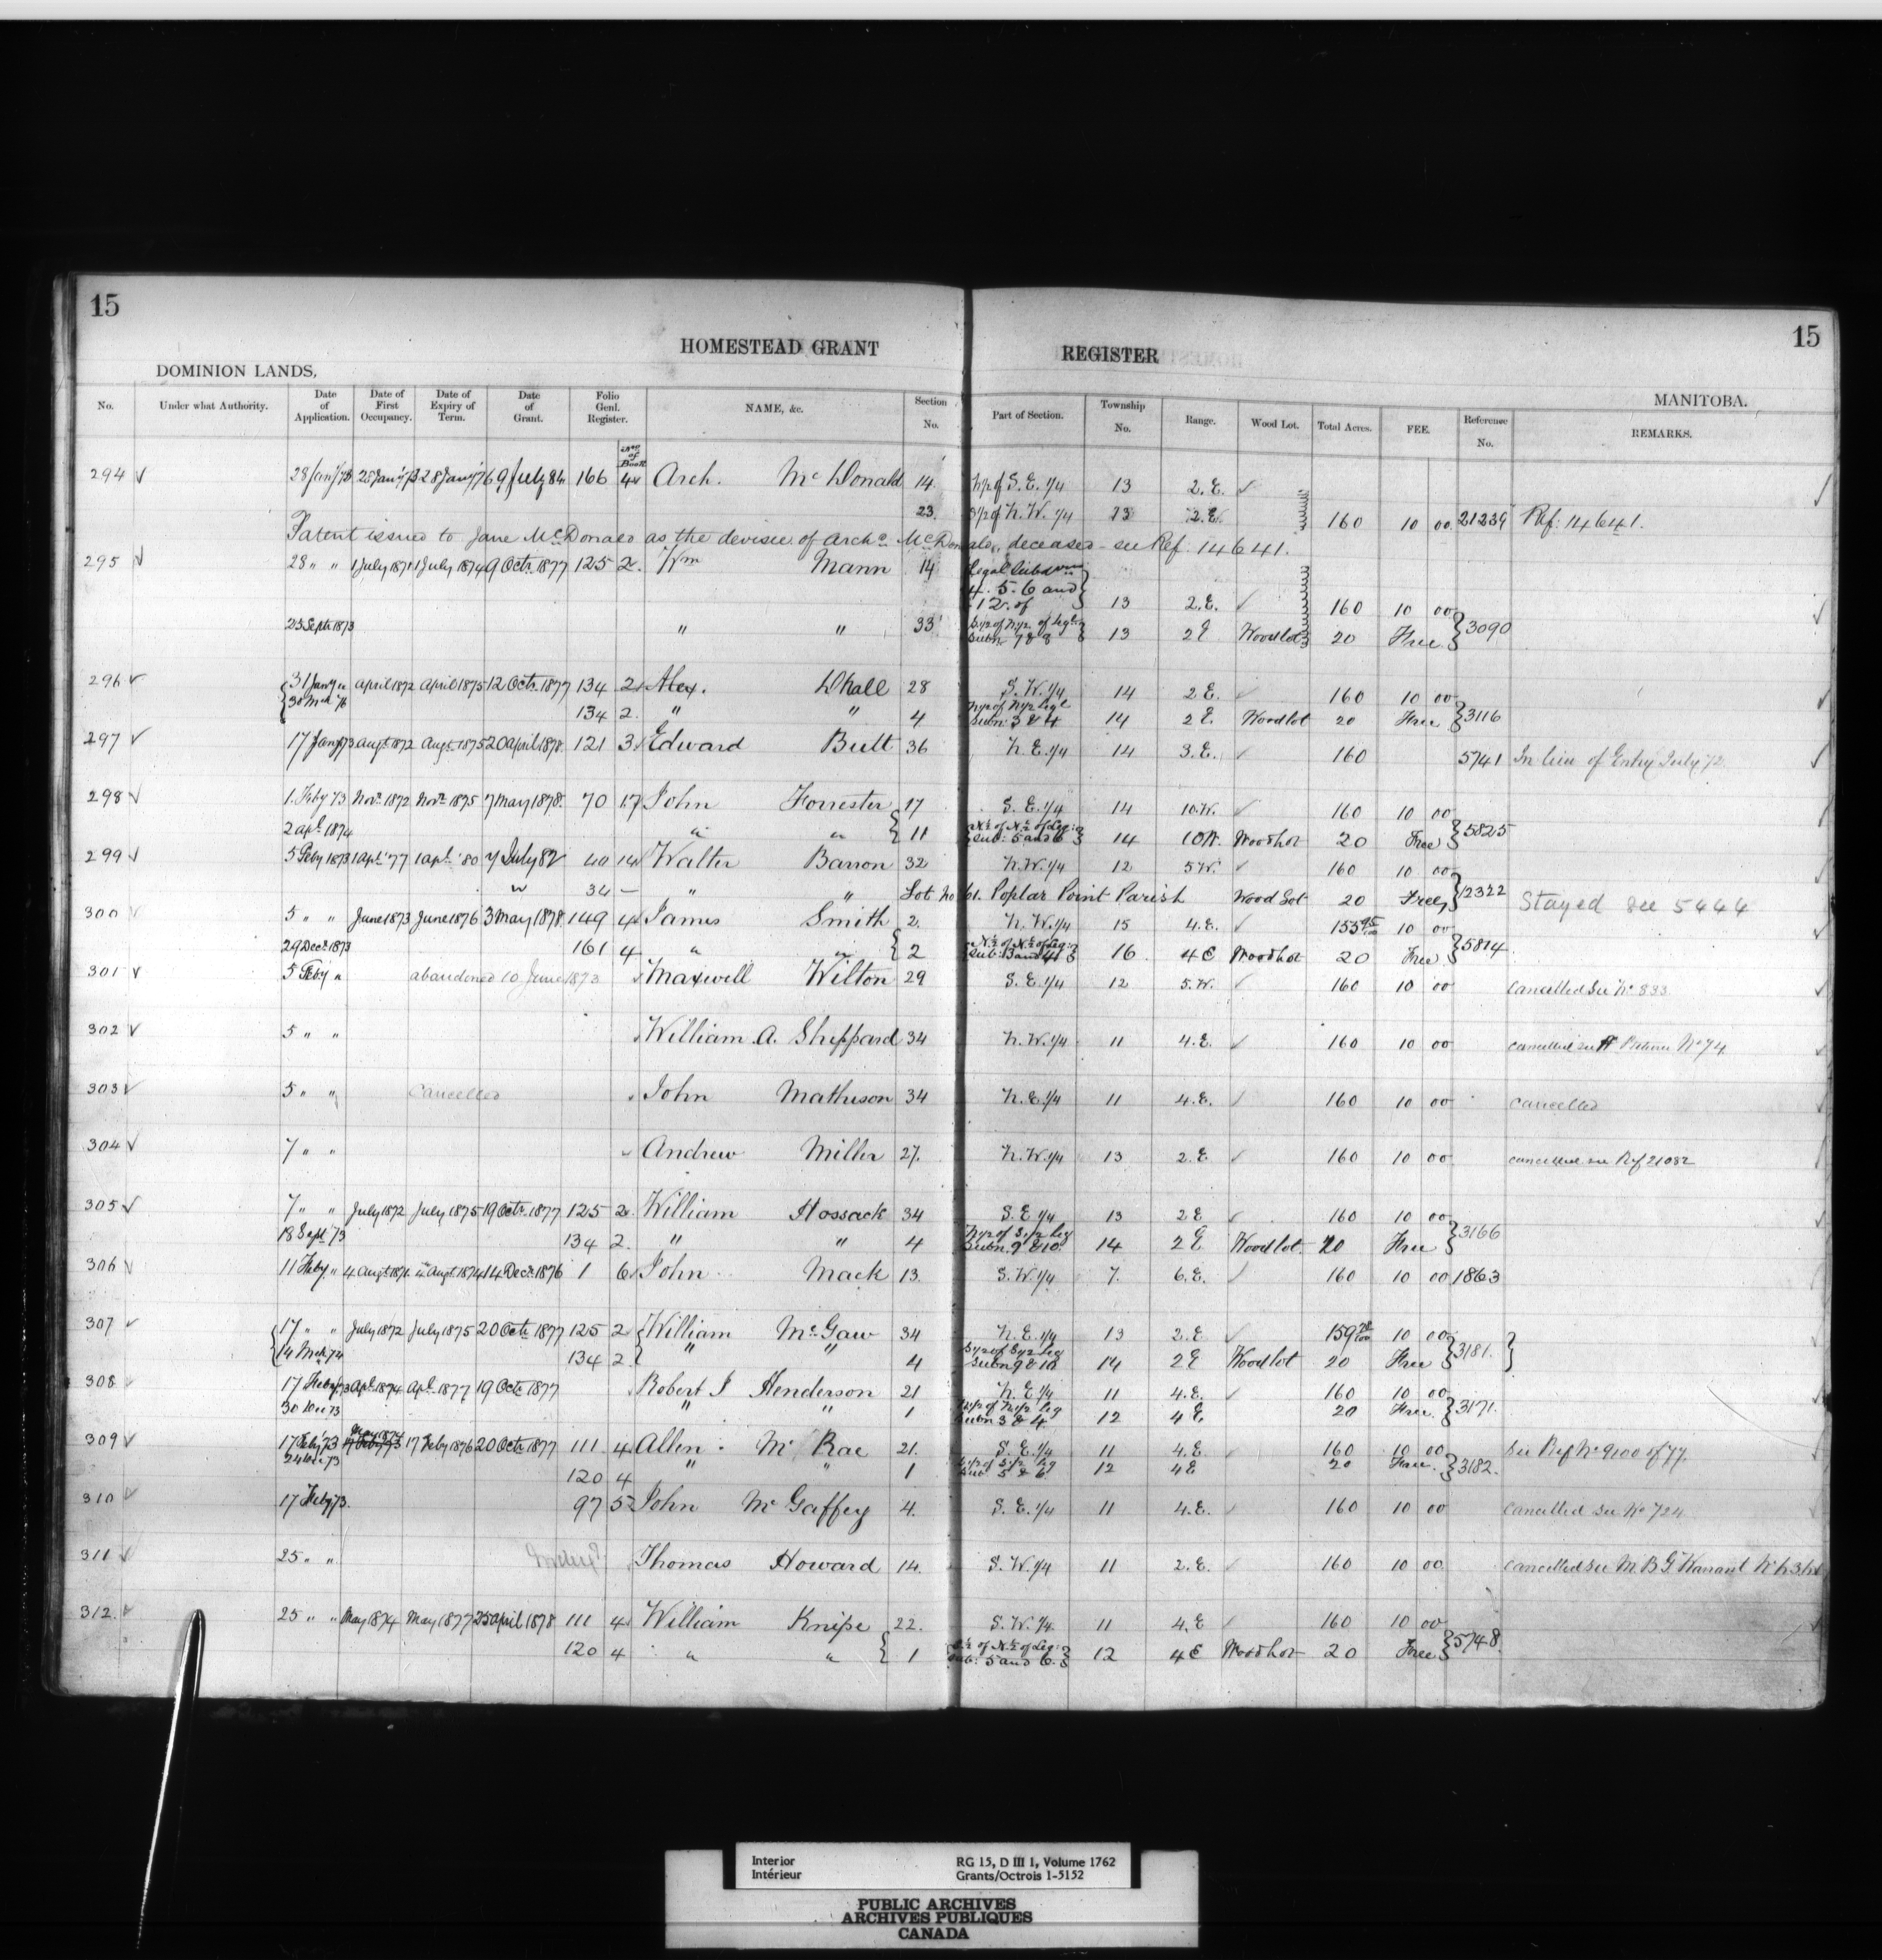 15
15
HOMESTEAD GRANT REGISTER
DOMINION LANDS,
MANITOBA.
No. Under what Authority. Date of Application. Date of First Occupancy. Date of Expiry of Term. Date of Grant. Folio Genl. Register. No of Book NAME, &c. Section No. Part of Section. Township No. Range. Wood Lot. Total Acres. FEE. Reference No. REMARKS.
294 28 Jany 73 28 Jany 73 28 Jany 76 9 July 84 166 4 Arch. McDonald 14 N/2 of S.E. 1/4 13 2.E.
23. S/2 of N.W. 1/4 13 2.E. 160 10 00 21239 Ref: 14641.
Patent issued to Jane McDonald as the devisee of Archd McDonald, deceased - see Ref. 14641.
295 28 " " 1 July 1871 1 July 1874 9 Octr 1877 125 2 Wm Mann 14 Legal Subdvns
4. 5. 6 and
12 of 13 2.E. 160 10 00
23 Septr 1873 " " 33 S/2 of N/2 of Legl Subn 7 & 8 13 2 E Woodlot 20 Free 3090
296 31 Jany " April 1872 April 1875 12 Octr 1877 134 2 Alex. Dhall 28 S.W. 1/4 14 2 E. 160 10 00
30 Mch 76 134 2 " " 4 N/2 of N/2 Legl Subn 3 & 4 14 2 E Woodlot 20 Free 3116
297 17 Jany 73 Augt 1872 Augt 1875 20 April 1878 121 3 Edward Bult 36 N.E. 1/4 14 3.E. 160 5741 In lieu of Entry July 72
298 1. Feby 73 Novr 1872 Novr 1875 7 May 1878 70 17 John Forrester 17 S.E. 1/4 14 10.W. 160 10 00
2 apl 1874 " " 11 N½ of N½ of Leg: Sub: 5 and 6 14 10 W. Woodlot 20 Free 5825
299 5 Feby 1873 1 apl '77 1 apl '80 7 July 82 40 14 Walter Barron 32 N.W. 1/4 12 5 W. 160 10 00
" 34 — " " Lot No 61. Poplar Point Parish Wood Lot 20 Free 12322 Stayed see 5444
300 5 " " June 1873 June 1876 3 May 1878 149 4 James Smith 2. N.W. 1/4 15 4.E. 155 95/100 10 00
29 Decr 1873 161 4 " " 2 N½ of N½ of Leg: Sub: 3 and 4 16 4 E Woodlot 20 Free 5814
301 5 Feby " abandoned 10 June 1873 Maxwell Wilton 29 S.E. 1/4 12 5.W. 160 10 00 Cancelled See No 833
302 5 " " William A. Sheppard 34 N.W. 1/4 11 4.E. 160 10 00 cancelled see No 74
303 5 " " Cancelled John Matheson 34 N.E. 1/4 11 4.E. 160 10 00 cancelled
304 7 " " Andrew Miller 27. N.W. 1/4 13 2.E 160 10 00 cancelled see Ref 21082
305 7 " " July 1872 July 1875 19 Octr 1877 125 2 William Hossack 34 S.E 1/4 13 2 E 160 10 00
18 Sept '73 134 2. " " 4 N/2 of S/2 Leg Subn. 9 & 10 14 2 E Woodlot 20 Free 3166
306 11 Feby " 4 Augt 1871 4 Augt 1874 14 Decr 1876 1 6 John Mack 13. S.W. 1/4 7. 6.E. 160 10 00 1863
307 17 " " July 1872 July 1875 20 Octr 1877 125 2 William McGaw 34 N.E. 1/4 13 2.E 159 78/100 10 00
14 Mch 74 134 2. " " 4 S/2 of S/2 Leg Subn 9 & 10 14 2 E Woodlot 20 Free 3181.
308 17 Feby 73 Apl 1874 Apl 1877 19 Octr 1877 Robert J Henderson 21 N.E 1/4 11 4.E. 160 10 00
30 Dec 73 " " 1 N/2 of N/2 Leg Subn 3 & 4 12 4 E 20 Free 3171.
309 17 Feby 73 May 1874 17 Feby 73 17 Feby 1876 20 Octr 1877 111 4 Allen Mc Rae 21. S.E. 1/4 11 4.E 160 10 00 See Ref No 9100 of 77.
24 Dec 73 120 4 " " 1 S/2 of S/2 Leg Sub 5 & 6 12 4 E 20 Free 3182.
310 17 Feby 73. 97 5 John Mc Gaffey 4. S.E. 1/4 11 4.E. 160 10 00 Cancelled See No 724
311 25 " " Thomas Howard 14. S.W. 1/4 11 2.E. 160 10 00 cancelled See M.B.G. Warrant No
312. 25 " " May 1874 May 1877 25 April 1878 111 4 William Knipe 22. S.W. 1/4 11 4.E 160 10 00
120 4 " " 1 of N½ of Leg: Sub: 5 and 6. 12 4 E Woodlot 20 Free 5748.
Interior
Intérieur
RG 15, D III 1, Volume 1762
Grants/Octrois 1-5152
PUBLIC ARCHIVES
ARCHIVES PUBLIQUES
CANADA